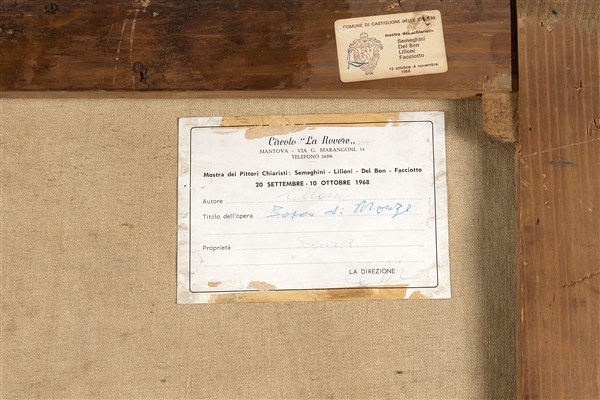 COMUNE DI CASTIGLIONE DELLE STIVIERE
mostra dei chiaristi
Semeghini
Del Bon
Lilloni
Facciotto
12 ottobre - 4 novembre
1968
Circolo "La Rovere„
MANTOVA - VIA G. MARANGONI, 14
TELEFONO
Mostra dei Pittori Chiaristi: Semeghini - Lilloni - Del Bon - Facciotto
20 SETTEMBRE - 10 OTTOBRE 1968
Autore Lilloni
Titolo dell'opera di
Proprietà
LA DIREZIONE